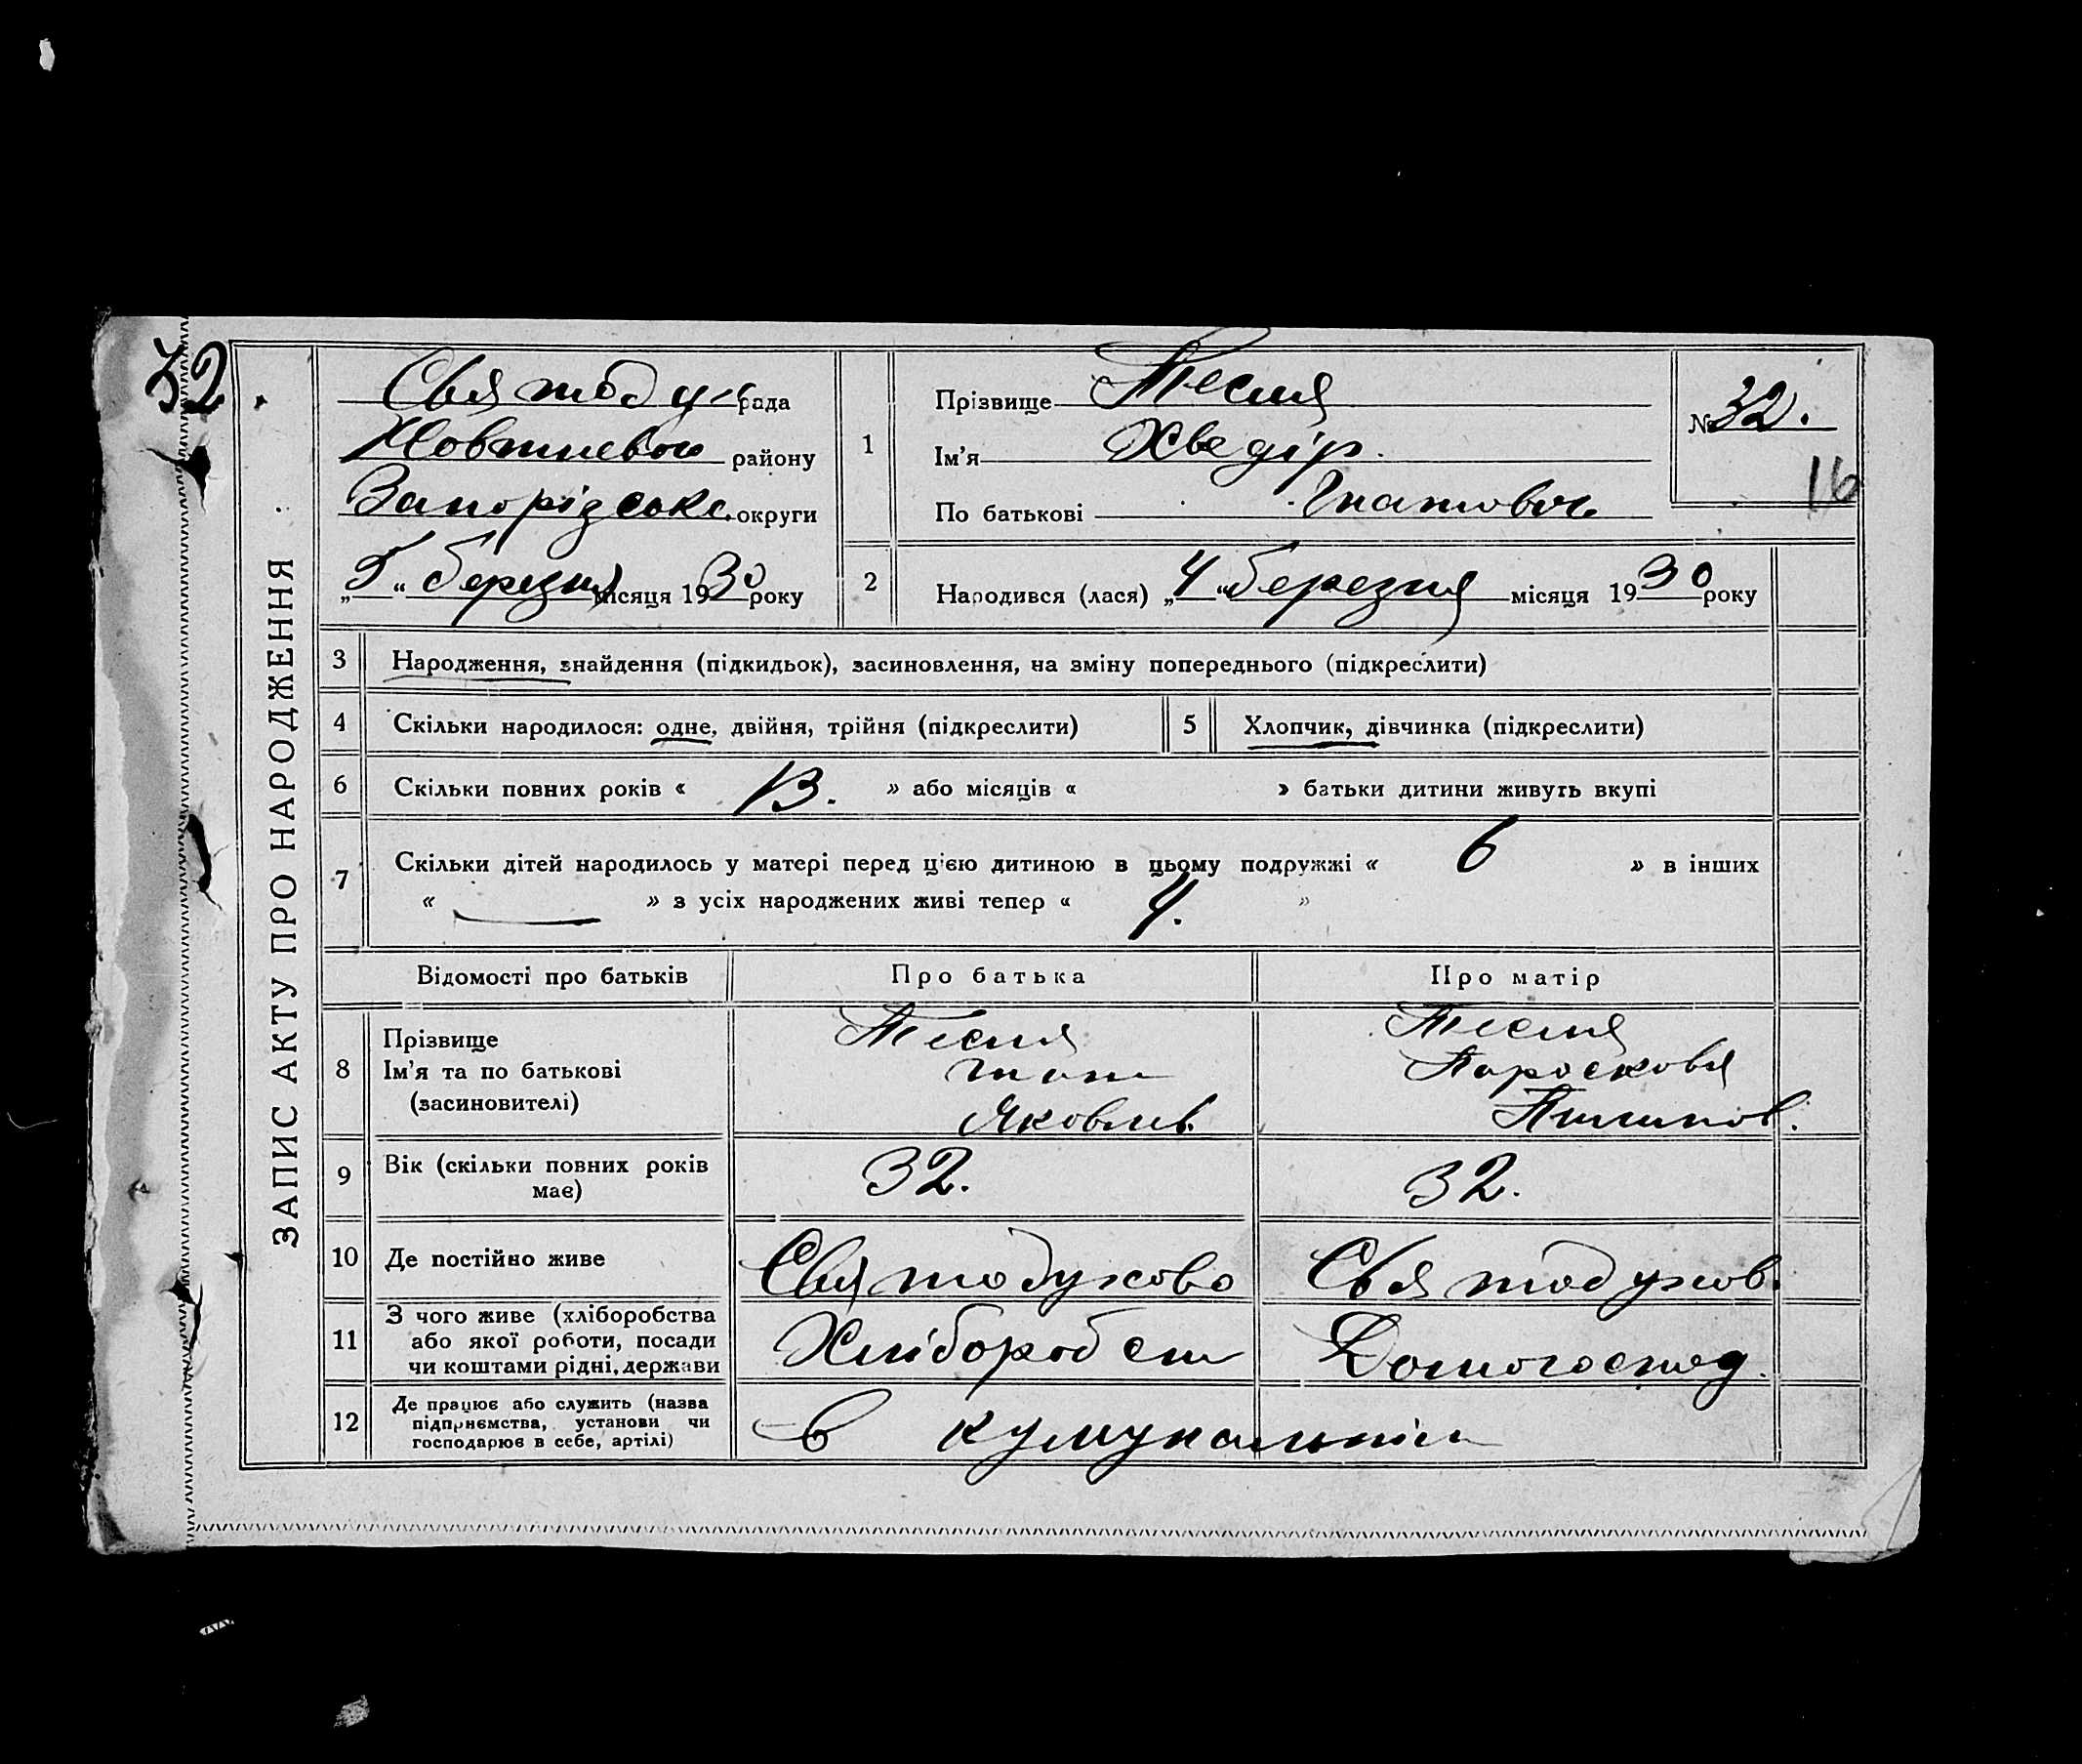 32
ЗАПИС АКТУ ПРО НАРОДЖЕННЯ
Святодух рада
Жовтневого району
Запорізько. округи
„5“ березня місяця 1930 року
1
Прізвище Тесля
Ім’я Хведір.
По батькові Гнатович
№ 32.
16
2
Народився (лася) „4“ березня місяця 1930 року
3 Народження, знайдення (підкидьок), засиновлення, на зміну попереднього (підкреслити)
4 Скільки народилося: одне, двійня, трійня (підкреслити) 5 Хлопчик, дівчинка (підкреслити)
6 Скільки повних років « 13. » або місяців « » батьки дитини живуть вкупі
7 Скільки дітей народилось у матері перед цією дитиною в цьому подружжі « 6 » в інших
« — » з усіх народжених живі тепер « 4. »
Відомості про батьків Про батька Про матір
8 Прізвище
Ім’я та по батькові
(засиновителі)
Тесля
Гнат
Яковлев.
Тесля
Паросковя
Пилипов.
9 Вік (скільки повних років
має)
32. 32.
10 Де постійно живе Святодухово Святодухов.
11 З чого живе (хліборобства
або якої роботи, посади
чи коштами рідні, держави
Хліборобст Домогоспод.
12 Де працює або служить (назва
підприємства, установи чи
господарює в себе, артілі)
в